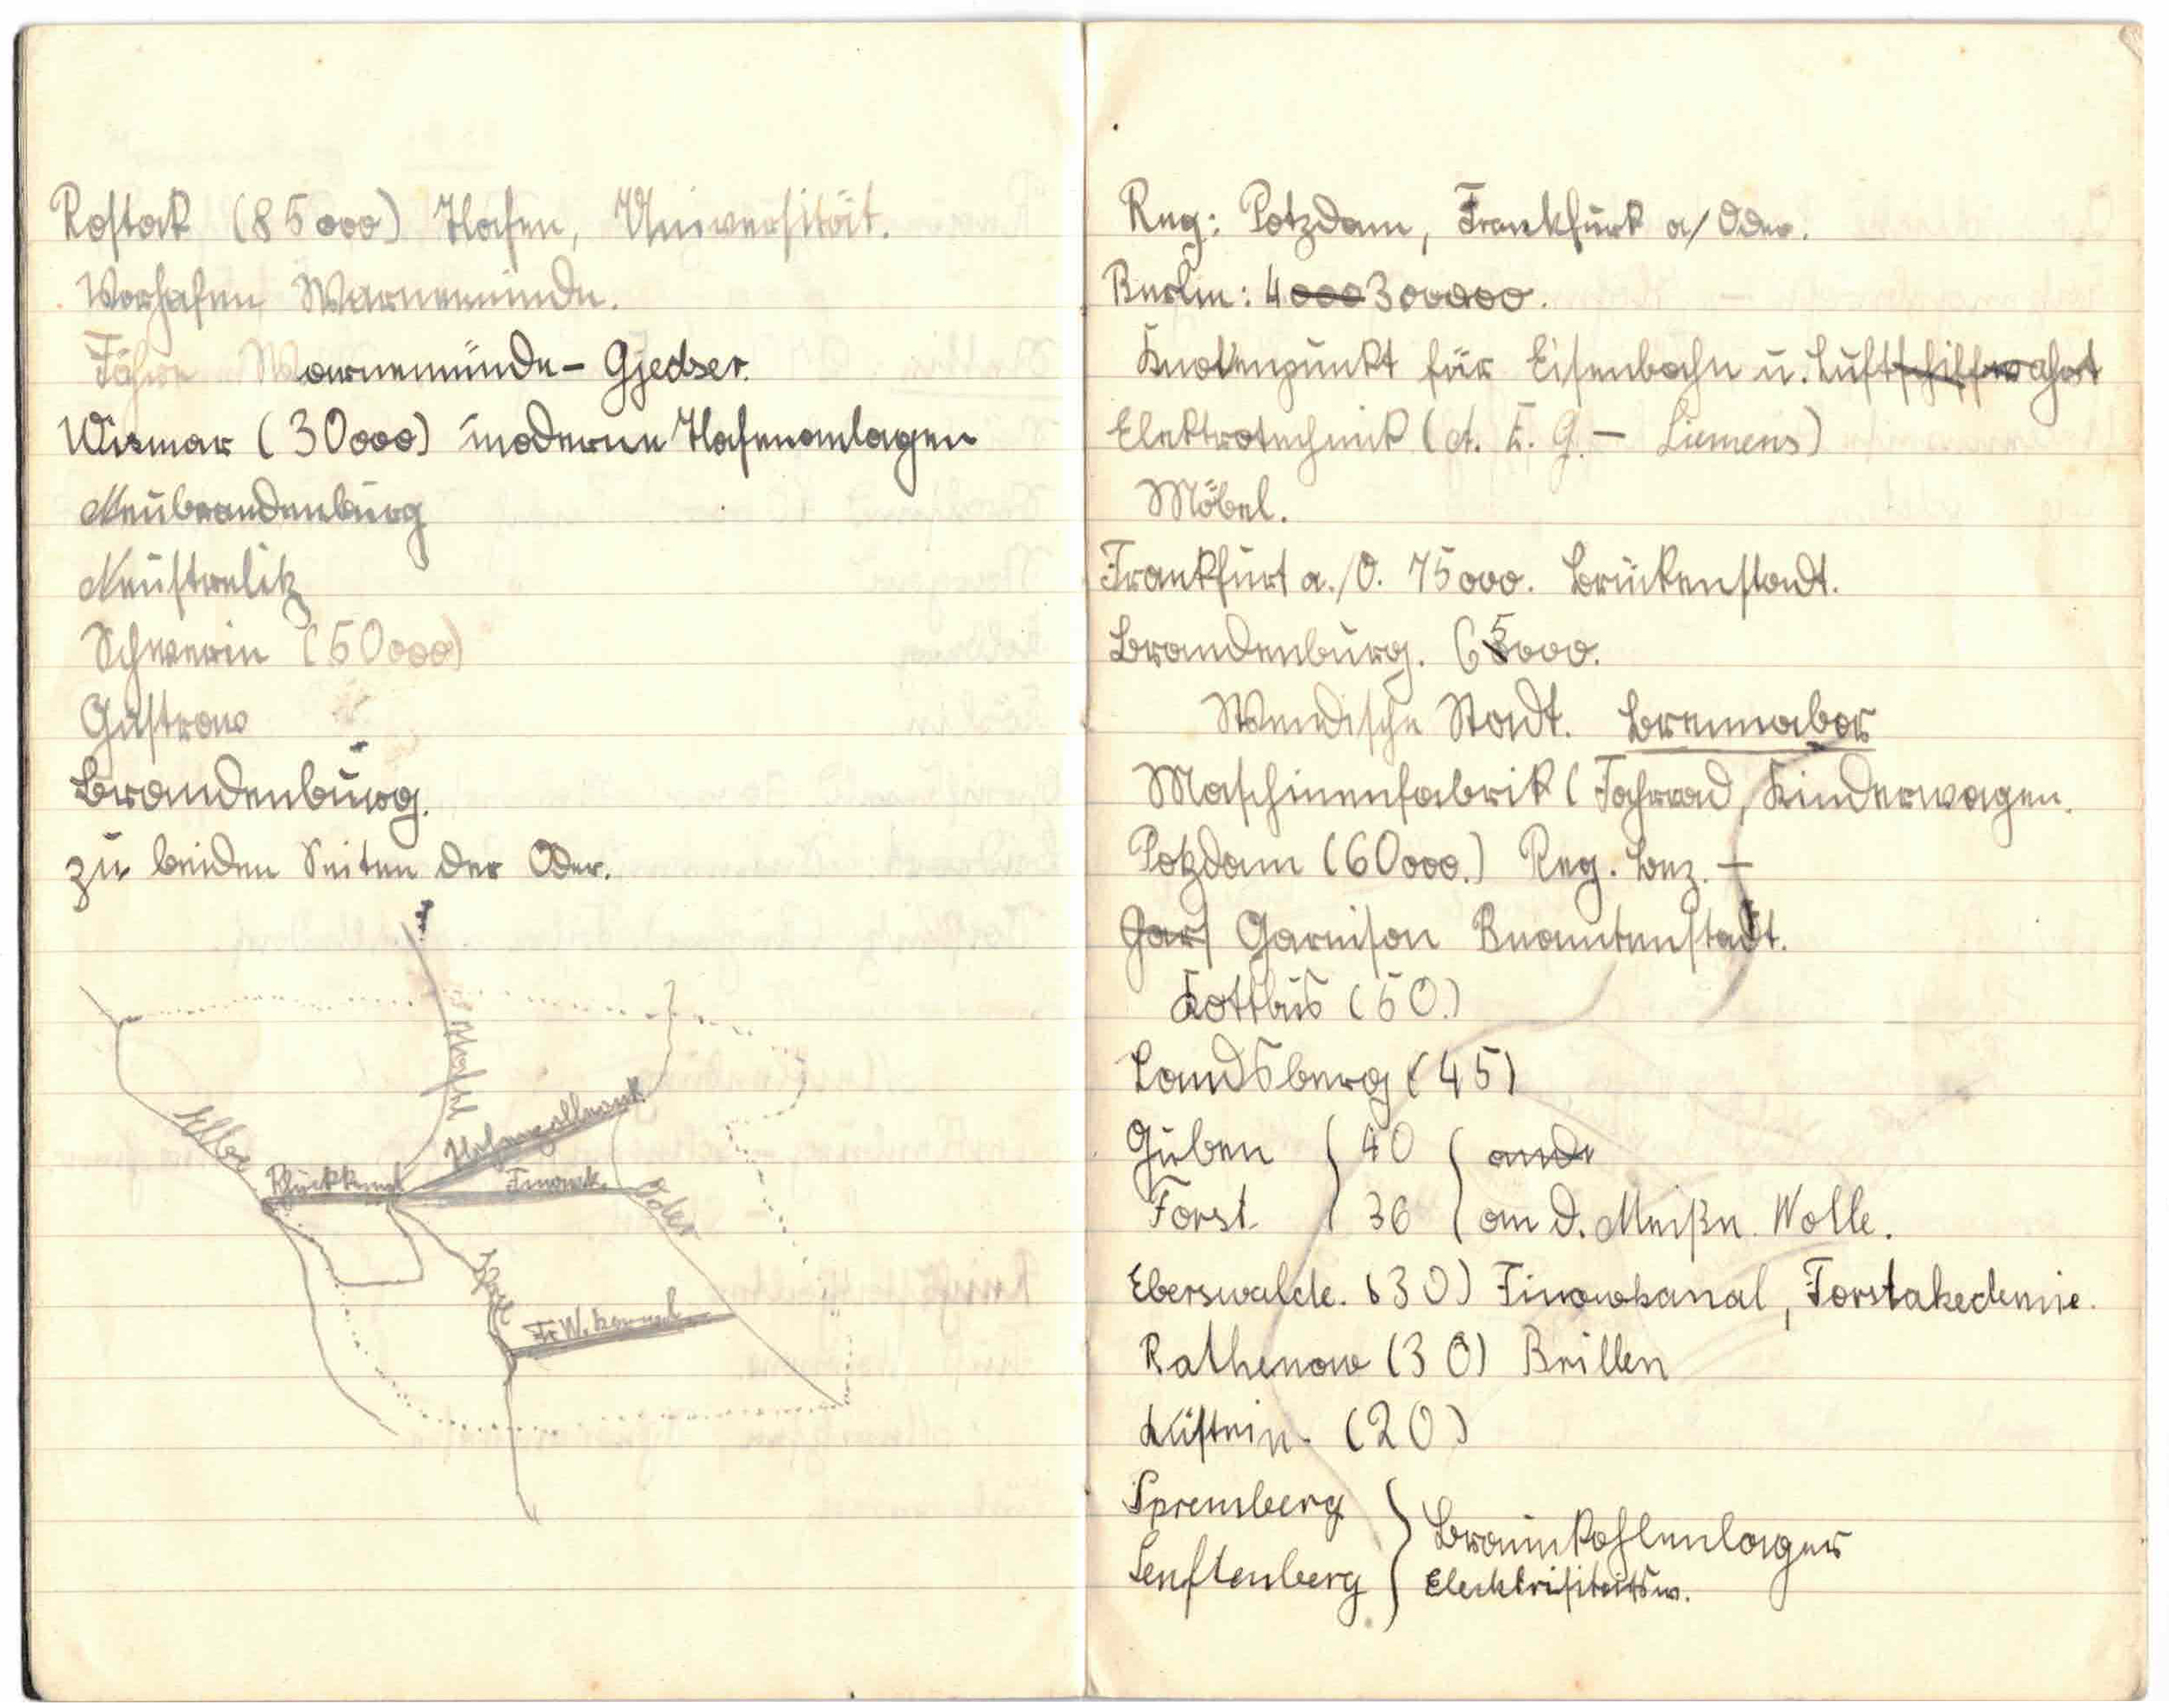 Rostok (85000) Hafen, Universität.
Vorhafen Warnemünde.
Fähre Warnemünde – Gjedser.
Wismar (30000) moderne Hafenanlagen
Neubrandenburg
Neustrelitz
Schwerin (50000)
Güstrow
Brandenburg.
zu beiden Seiten der Oder.
Elbe
Hohenzollernk
Finowk.
Oder
Spree
Fr. W. kanal
Reg: Potzdam, Frankfurt a/Oder.
Berlin: 4000300000.
Knotenpunkt für Eisenbahn u. Luftschiffahrt
Elektrotechnik (A. E. G. – Siemens)
Möbel.
Frankfurt a./O. 75000. Brückenstadt.
Brandenburg. 65000.
Wendische Stadt. Brennabor
Maschinenfabrik (Fahrrad, Kinderwagen.
Potzdam (60000.) Reg. Bez. –
Gars Garnison Beamtenstadt.
Kottbus (50.)
Landsberg (45)
Guben ( 40 ( ande
Forst ( 36 ( an d. Neißn. Wolle.
Eberswalde. (30) Finowkanal, Forstakedemie.
Rathenow (30) Brillen
Küstrin. (20)
Spremberg } Braunkohlenlager
Senftenberg } Elecktrisitätsw.